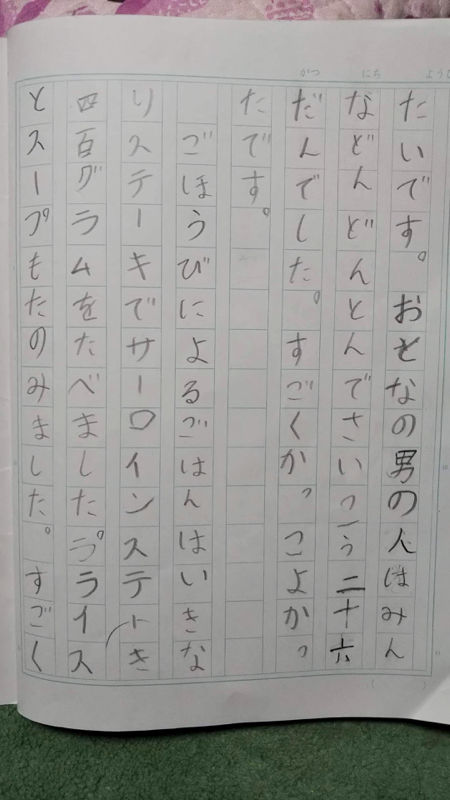 がつ にち よう
たいです。おとなの男の人はみん
などんどんとんでさいっこう二十六
だんでした。すごくかっこよかっ
たです。
ごほうびによるごはんはいきな
りステーキでサーロインステーき
四百グラムをたべましたプライス
とスープもたのみました。すごく